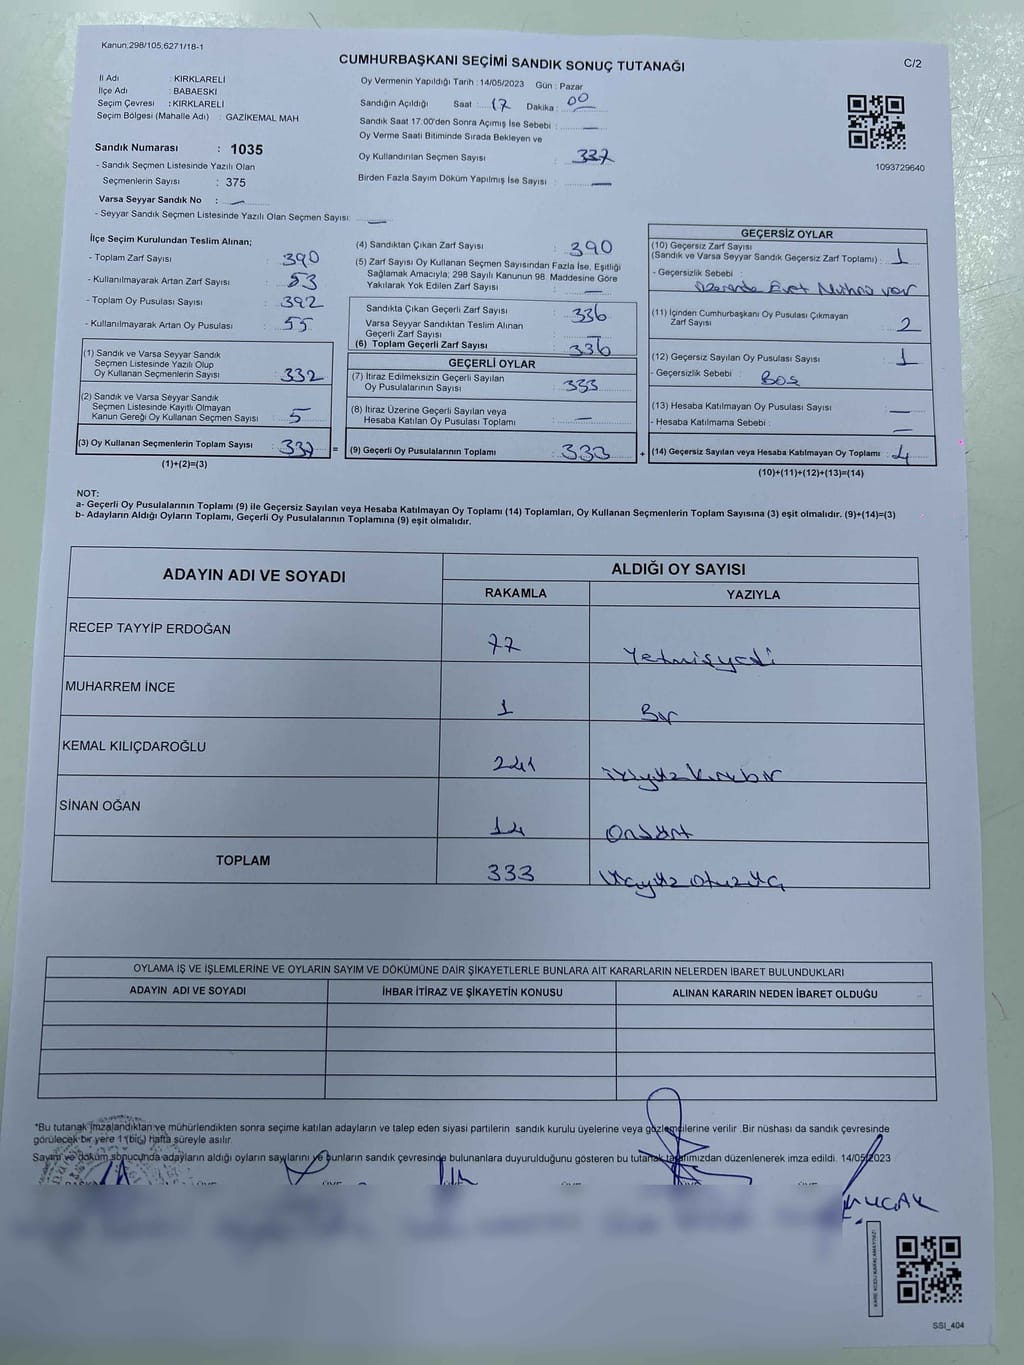 Kanun;298/105;6271/18-1
CUMHURBAŞKANI SEÇİMİ SANDIK SONUÇ TUTANAĞI
C/2
İl Adı : KIRKLARELİ
İlçe Adı : BABAESKİ
Seçim Çevresi : KIRKLARELİ
Seçim Bölgesi (Mahalle Adı) : GAZİKEMAL MAH
Oy Vermenin Yapıldığı Tarih : 14/05/2023 Gün : Pazar
Sandığın Açıldığı Saat : 17 Dakika : 00
Sandık Saat 17.00'den Sonra Açımış İse Sebebi : —
Oy Verme Saati Bitiminde Sırada Bekleyen ve
Oy Kullandırılan Seçmen Sayısı : 337
Birden Fazla Sayım Döküm Yapılmış İse Sayısı : —
1093729640
Sandık Numarası : 1035
- Sandık Seçmen Listesinde Yazılı Olan
Seçmenlerin Sayısı : 375
Varsa Seyyar Sandık No : —
- Seyyar Sandık Seçmen Listesinde Yazılı Olan Seçmen Sayısı: —
İlçe Seçim Kurulundan Teslim Alınan;
- Toplam Zarf Sayısı : 390
- Kullanılmayarak Artan Zarf Sayısı : 53
- Toplam Oy Pusulası Sayısı : 392
- Kullanılmayarak Artan Oy Pusulası : 55
(1) Sandık ve Varsa Seyyar Sandık
Seçmen Listesinde Yazılı Olup
Oy Kullanan Seçmenlerin Sayısı : 332
(2) Sandık ve Varsa Seyyar Sandık
Seçmen Listesinde Kayıtlı Olmayan
Kanun Gereği Oy Kullanan Seçmen Sayısı : 5
(3) Oy Kullanan Seçmenlerin Toplam Sayısı : 337 =
(1)+(2)=(3)
(4) Sandıktan Çıkan Zarf Sayısı : 390
(5) Zarf Sayısı Oy Kullanan Seçmen Sayısından Fazla İse, Eşitliği
Sağlamak Amacıyla; 298 Sayılı Kanunun 98. Maddesine Göre
Yakılarak Yok Edilen Zarf Sayısı : —
Sandıkta Çıkan Geçerli Zarf Sayısı : 336
Varsa Seyyar Sandıktan Teslim Alınan
Geçerli Zarf Sayısı : —
(6) Toplam Geçerli Zarf Sayısı : 336
GEÇERLİ OYLAR
(7) İtiraz Edilmeksizin Geçerli Sayılan
Oy Pusulalarının Sayısı : 333
(8) İtiraz Üzerine Geçerli Sayılan veya
Hesaba Katılan Oy Pusulası Toplamı : —
(9) Geçerli Oy Pusulalarının Toplamı : 333 +
GEÇERSİZ OYLAR
(10) Geçersiz Zarf Sayısı
(Sandık ve Varsa Seyyar Sandık Geçersiz Zarf Toplamı) : 1
- Geçersizlik Sebebi :
Üzerinde Evet Mührü var
(11) İçinden Cumhurbaşkanı Oy Pusulası Çıkmayan
Zarf Sayısı : 2
(12) Geçersiz Sayılan Oy Pusulası Sayısı : 1
- Geçersizlik Sebebi : Boş
(13) Hesaba Katılmayan Oy Pusulası Sayısı : —
- Hesaba Katılmama Sebebi : —
(14) Geçersiz Sayılan veya Hesaba Katılmayan Oy Toplamı : 4
(10)+(11)+(12)+(13)=(14)
NOT:
a- Geçerli Oy Pusulalarının Toplamı (9) ile Geçersiz Sayılan veya Hesaba Katılmayan Oy Toplamı (14) Toplamları, Oy Kullanan Seçmenlerin Toplam Sayısına (3) eşit olmalıdır. (9)+(14)=(3)
b- Adayların Aldığı Oyların Toplamı, Geçerli Oy Pusulalarının Toplamına (9) eşit olmalıdır.
ADAYIN ADI VE SOYADI ALDIĞI OY SAYISI
RAKAMLA YAZIYLA
RECEP TAYYİP ERDOĞAN 77 Yetmişyedi
MUHARREM İNCE 1 Bir
KEMAL KILIÇDAROĞLU 241 ikiyüz kırkbir
SİNAN OĞAN 14 Ondört
TOPLAM 333 Üçyüz otuzüç
OYLAMA İŞ VE İŞLEMLERİNE VE OYLARIN SAYIM VE DÖKÜMÜNE DAİR ŞİKAYETLERLE BUNLARA AİT KARARLARIN NELERDEN İBARET BULUNDUKLARI
ADAYIN ADI VE SOYADI İHBAR İTİRAZ VE ŞİKAYETİN KONUSU ALINAN KARARIN NEDEN İBARET OLDUĞU
*Bu tutanak imzalandıktan ve mühürlendikten sonra seçime katılan adayların ve talep eden siyasi partilerin sandık kurulu üyelerine veya gözlemcilerine verilir .Bir nüshası da sandık çevresinde
görülecek bir yere 1 (bir) hafta süreyle asılır.
Sayım ve döküm sonucunda adayların aldığı oyların sayılarını ve bunların sandık çevresinde bulunanlara duyurulduğunu gösteren bu tutanak tarafımızdan düzenlenerek imza edildi. 14/05/2023
SSI_404